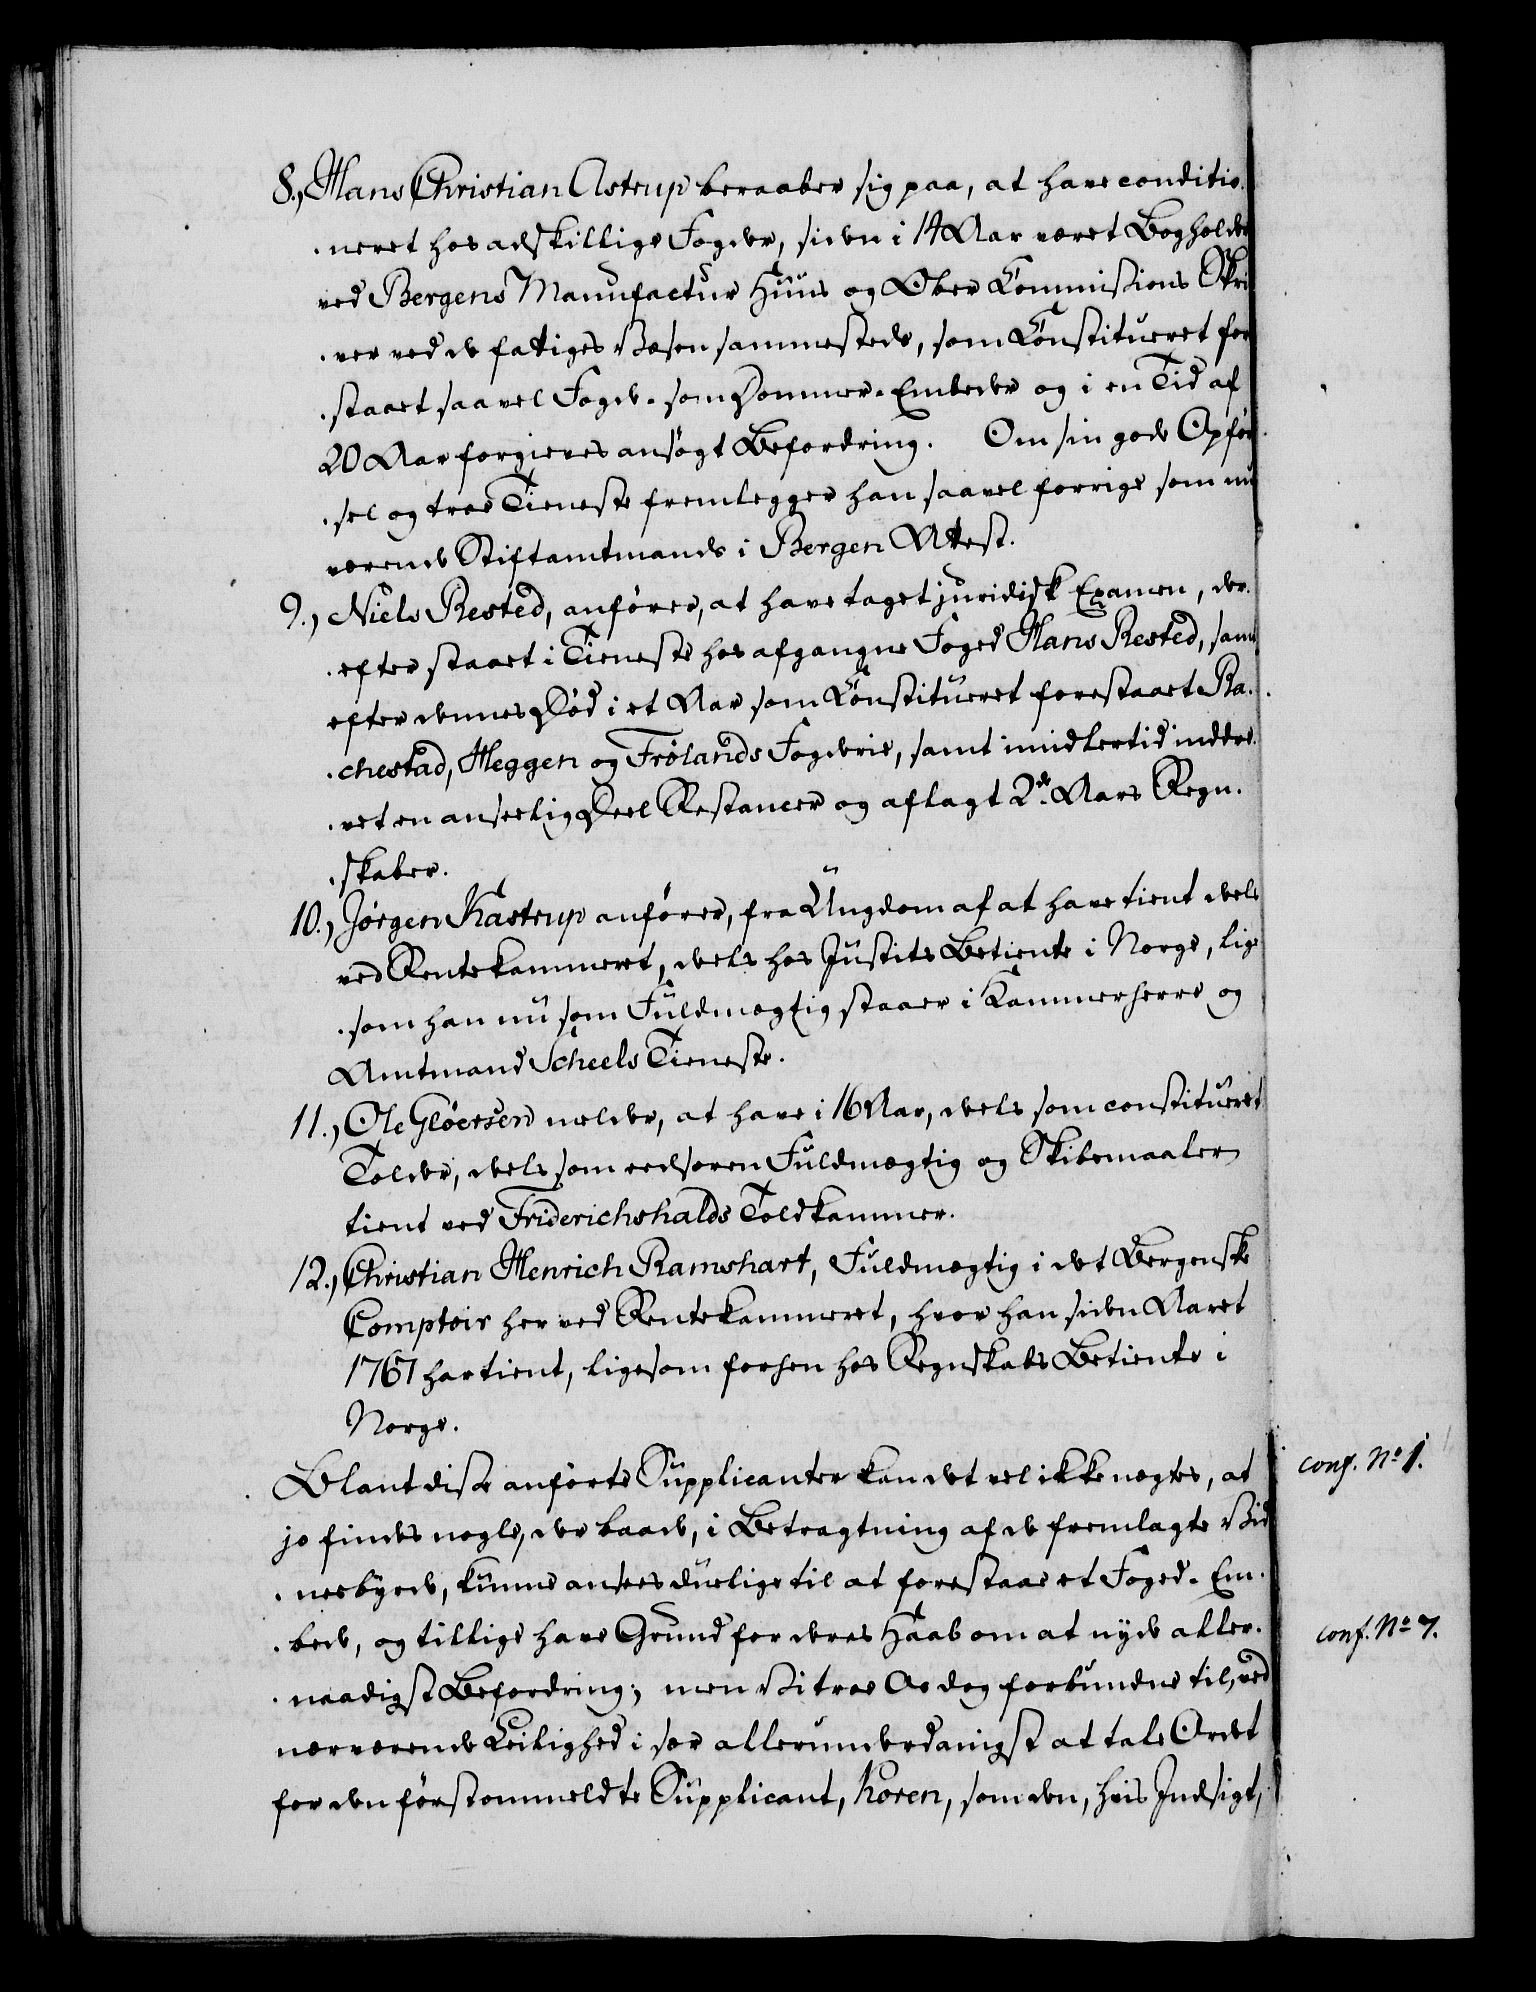 8., Hans Christian Astrup beraaber sig paa, at have conditio-
neret hos adskillige Fogder, siden i 14 Aar været Bogholder
ved Bergens Manufactur Huus og Ober Commissions Skri
ver ved de fattiges Væsen sammesteds, som Constitueret for
staaet saavel Fogde- som Dommer-Embeder og i en Tid af
20 Aar forgieves ansøgt Befordring. Om sin gode Opfør
sel og troe Tieneste fremlegger han saavel forrige som nu
værende Stiftamtmands i Bergen Attest.
9., Niels Rested, anfører, at have taget juridisk Examen, der-
efter staaet i Tieneste hos afgangne Foged Hans Rested, samt
efter dennes Død i et Aar som Constitueret forestaaet Ra-
chestad, Heggen og Frølands Fogderie, samt imidlertid inddre-
vet en anseelig Deel Restancer og aflagt 2de Aars Regn-
skaber.
10., Jørgen Kastrup anfører, fra Ungdom af at have tient deels
ved Rentekammeret, deels hos Justits Betiente i Norge, lige
som han nu som Fuldmægtig staaer i Kammerherre og
Amtmand Scheels Tieneste.
11., Ole Gløersen melder, at have i 16 Aar, deels som constitueret
Tolder, deels som eedsoren Fuldmægtig og Skibsmaaler
tient ved Friderichshalds Toldkammer.
12., Christian Henrich Ramshart, Fuldmægtig i det Bergenske
Comptoir her ved Rentekammeret, hvor han siden Aaret
1767 har tient, ligesom forhen hos Regnskabs Betiente i
Norge.
Blant disse anførte Supplicanter kan det vel ikke negtes, at
jo findes nogle, der baade, i Betragtning af de fremlagte Vid
nesbyrd, kunne ansees duelige til at forestaae et Foged-Em-
bede, og tillige have Grund for deres Haab om at nyde aller-
naadigst Befordring; men Vi troe Os dog forbundne til, ved
nærværende Leilighed i sær allerunderdanigst at tale Ordet
for den førstommeldte Supplicant, Koren, som den, hvis Indsigt,
conf. No 1.
conf. No 7.